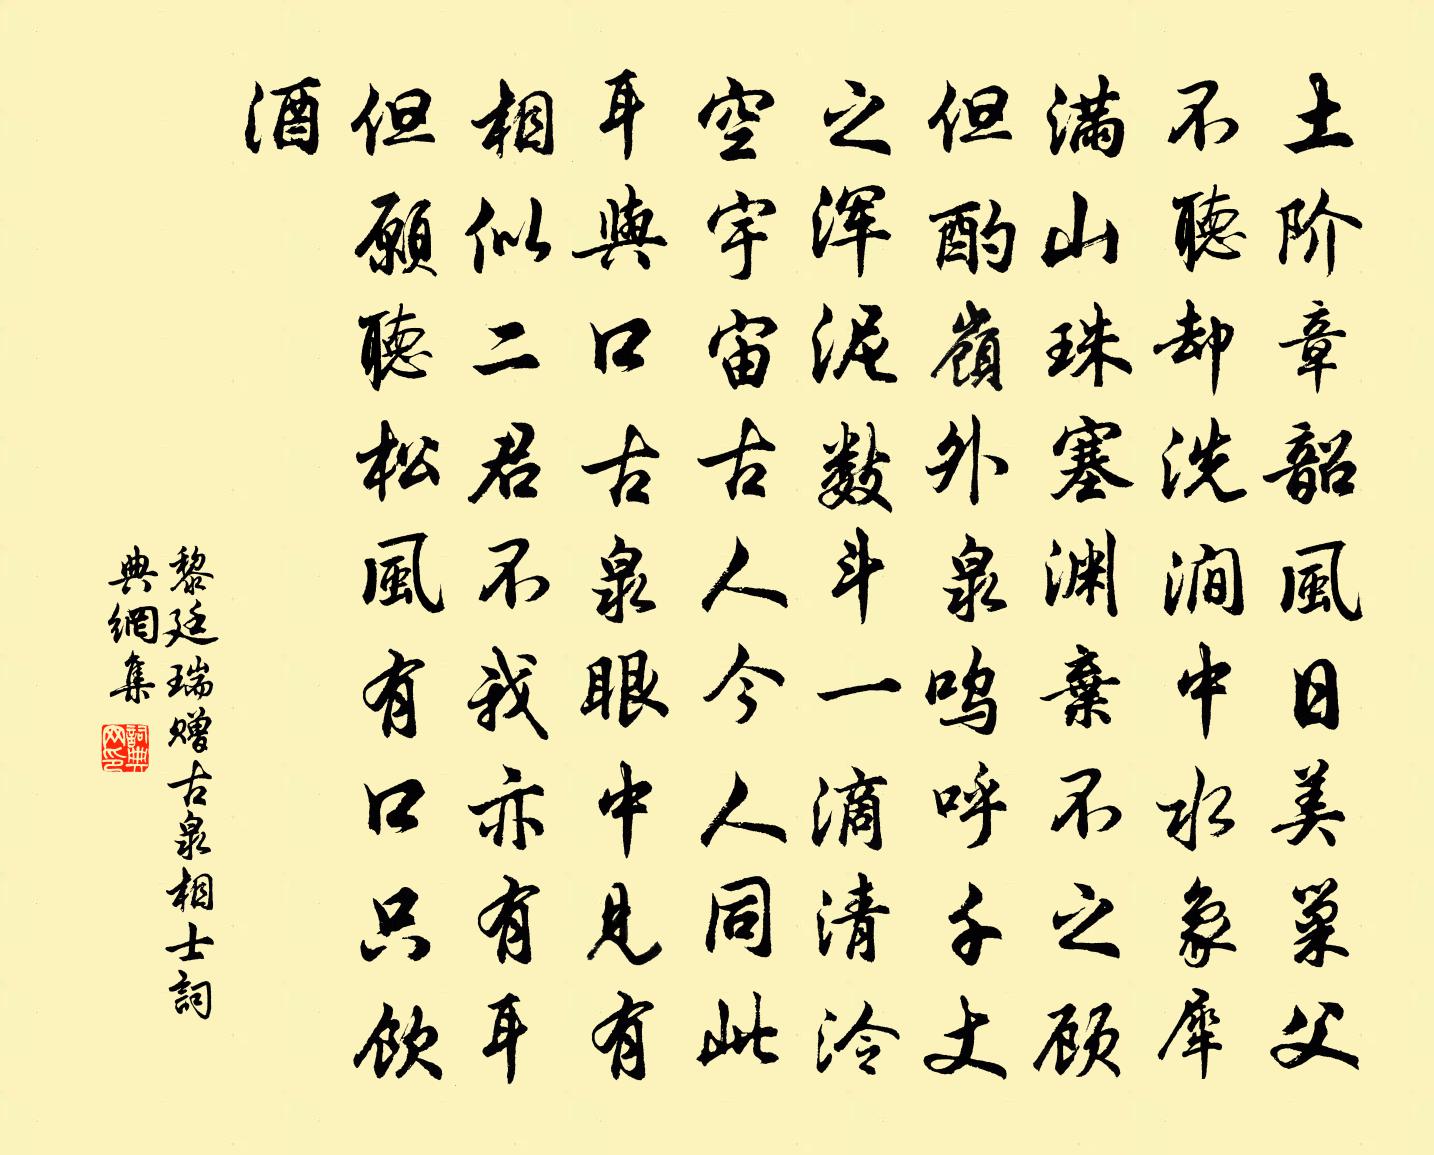 土阶章韶風日美巢父
不聽却洗澗中水象犀
满山珠塞渊棄不之顾
但酌嶺外泉鸣呼千丈
之浑泥数斗一滴清泠
空宇宙古人今人同此
耳與口古泉眼中見有
相似二君不我亦有耳
但願聽松風有口只飲
酒
黎廷瑞赠古泉相士詞
典網集
詞典网印